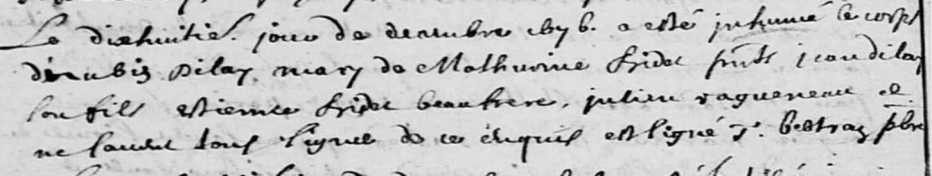 Le dixhuitie. jour de decembre a esté inhumé le corps
dilay mary de Mathurine fridet pnts jean dilay
son fils estienne fridet beaufrere, julien ragueneau et
ne savent tous signer de ce enquis est signé J. pbre